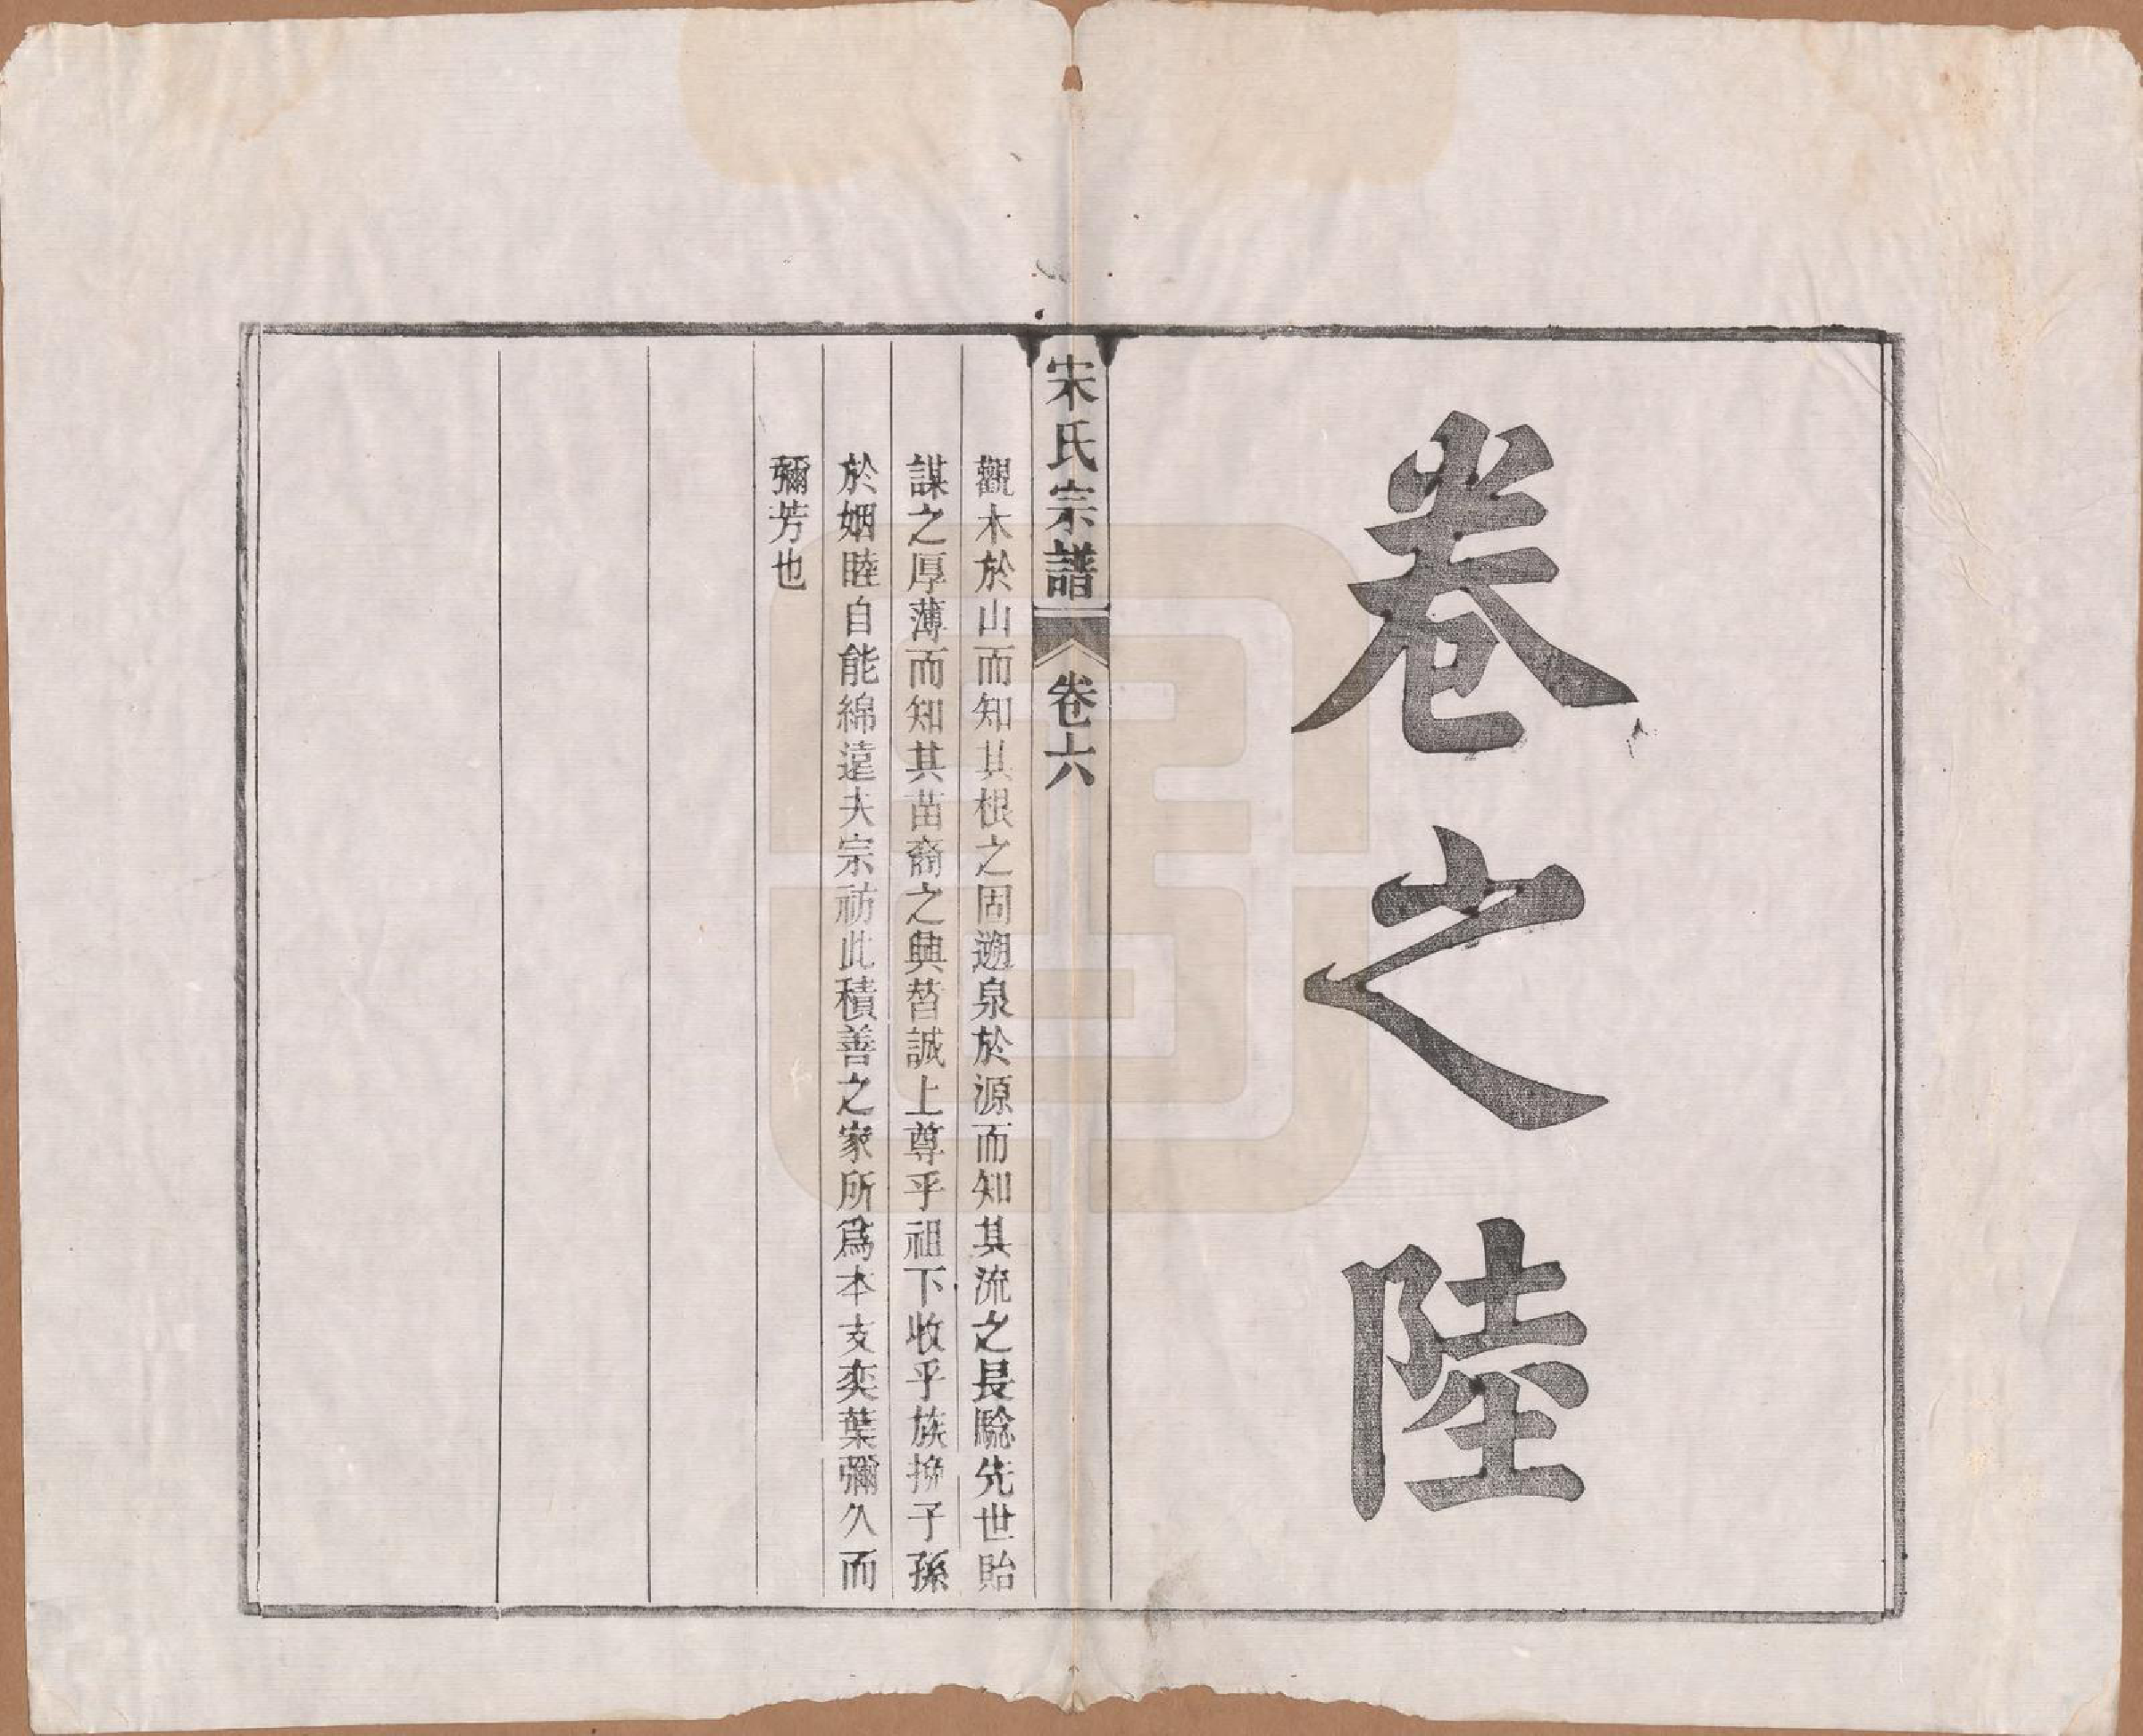 卷之陸
宋氏宗譜 卷六
觀木於山而知其根之固遡泉於源而知其流之長騐先世貽
謀之厚薄而知其苗裔之興替誠上尊乎祖下收乎族㧞子孫
於姻睦自能綿遠大宗祊此積善之家所爲本支奕葉彌久而
彌芳也